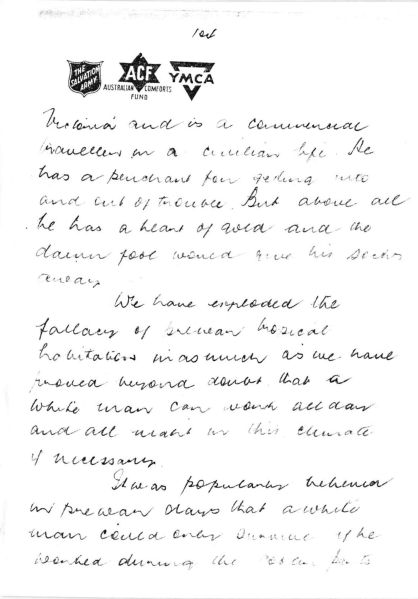 THE SALVATION ARMY
ACF
AUSTRALIAN COMFORTS FUND
YMCA
Victoria and is a commercial
traveller in a civilian life. He
has a penchant for getting into
and out of trouble. But above all
he has a heart of gold and the
damn fool would give his socks
away.
We have exploded the
fallacy of prewar tropical
habitation in as much as we have
proved beyond doubt that a
white man can work all day
and all night in this climate
if necessary.
It was popularly believed
in prewar days that a white
man could only survive if he
worked during the cooler parts